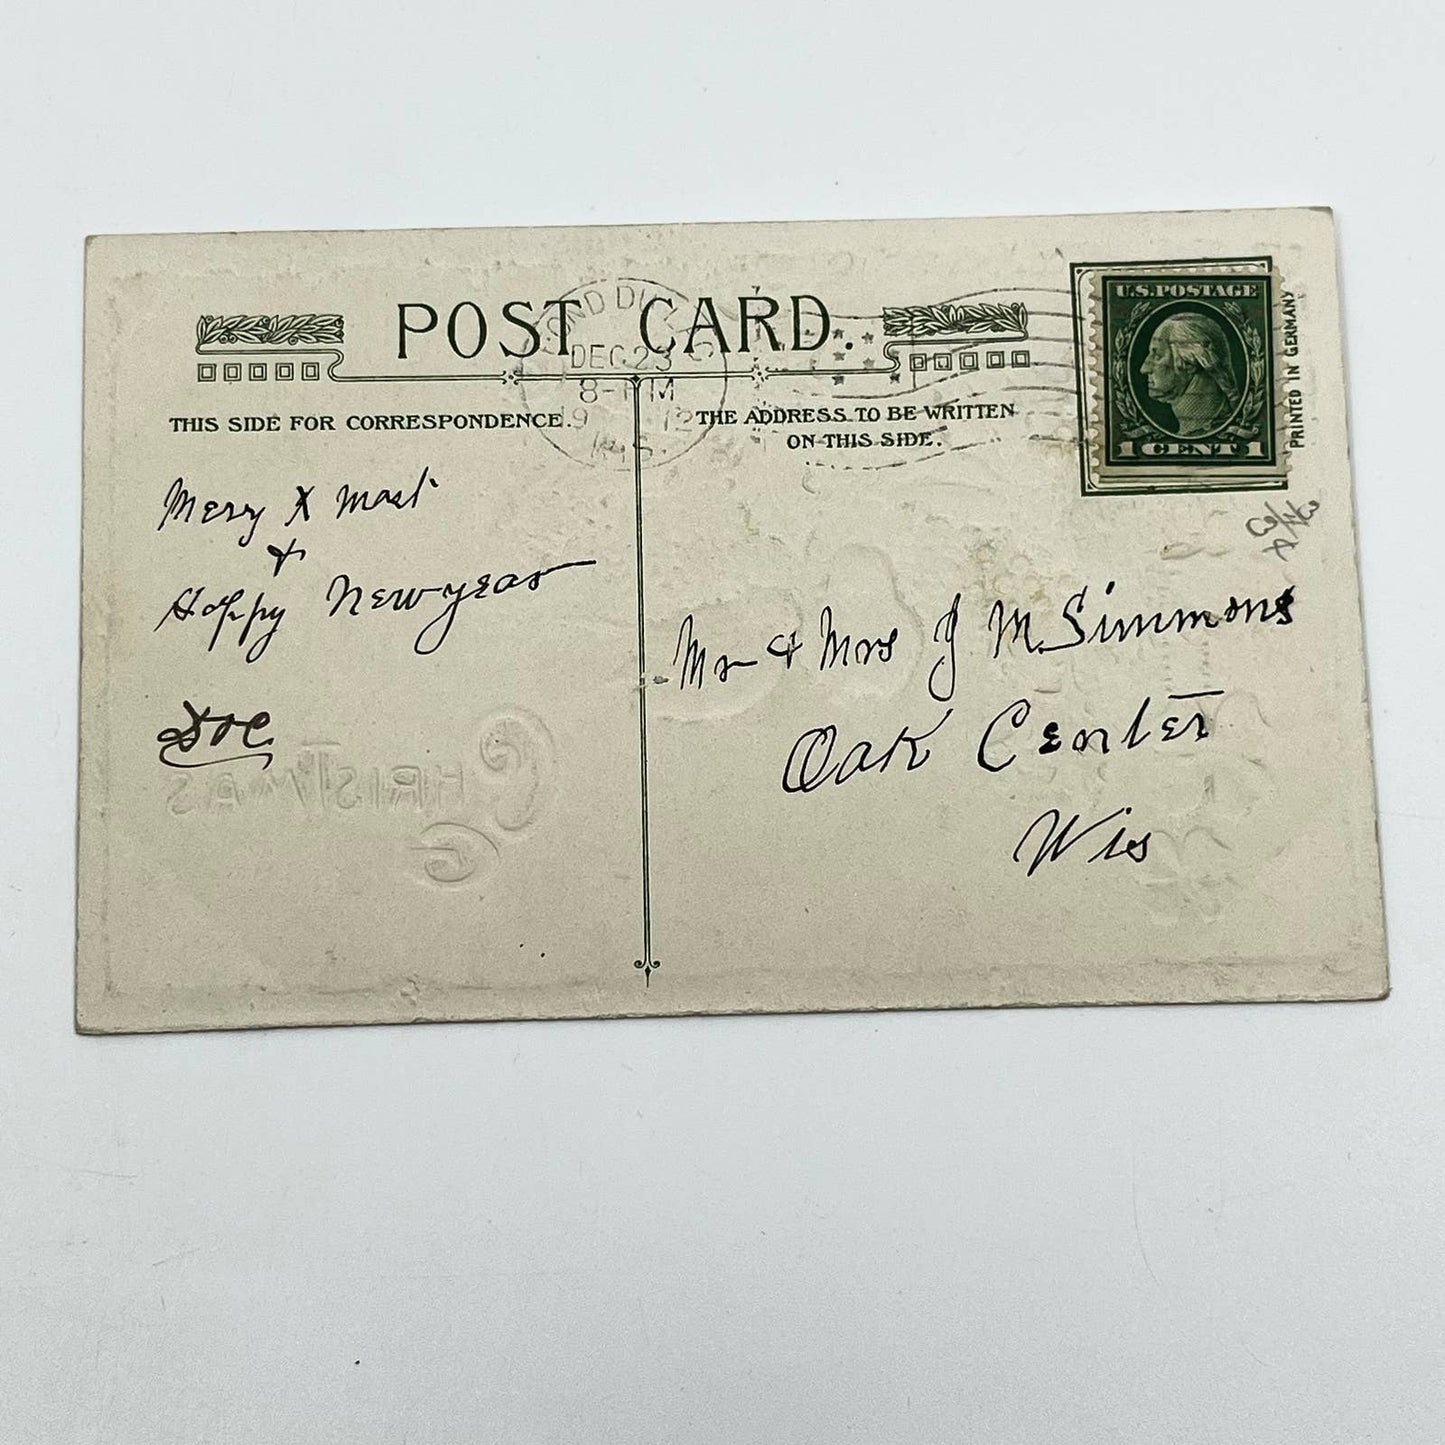 POST CARD.
FOND DU LAC
DEC 23
8- PM
1912
WIS.
U.S. POSTAGE
1 CENT 1
PRINTED IN GERMANY
THIS SIDE FOR CORRESPONDENCE.
THE ADDRESS TO BE WRITTEN
ON THIS SIDE.
Merry X Mast
+
Happy New year
Doc
Mr + Mrs J M. Simmons
Oak Center
Wis
CHRISTMAS